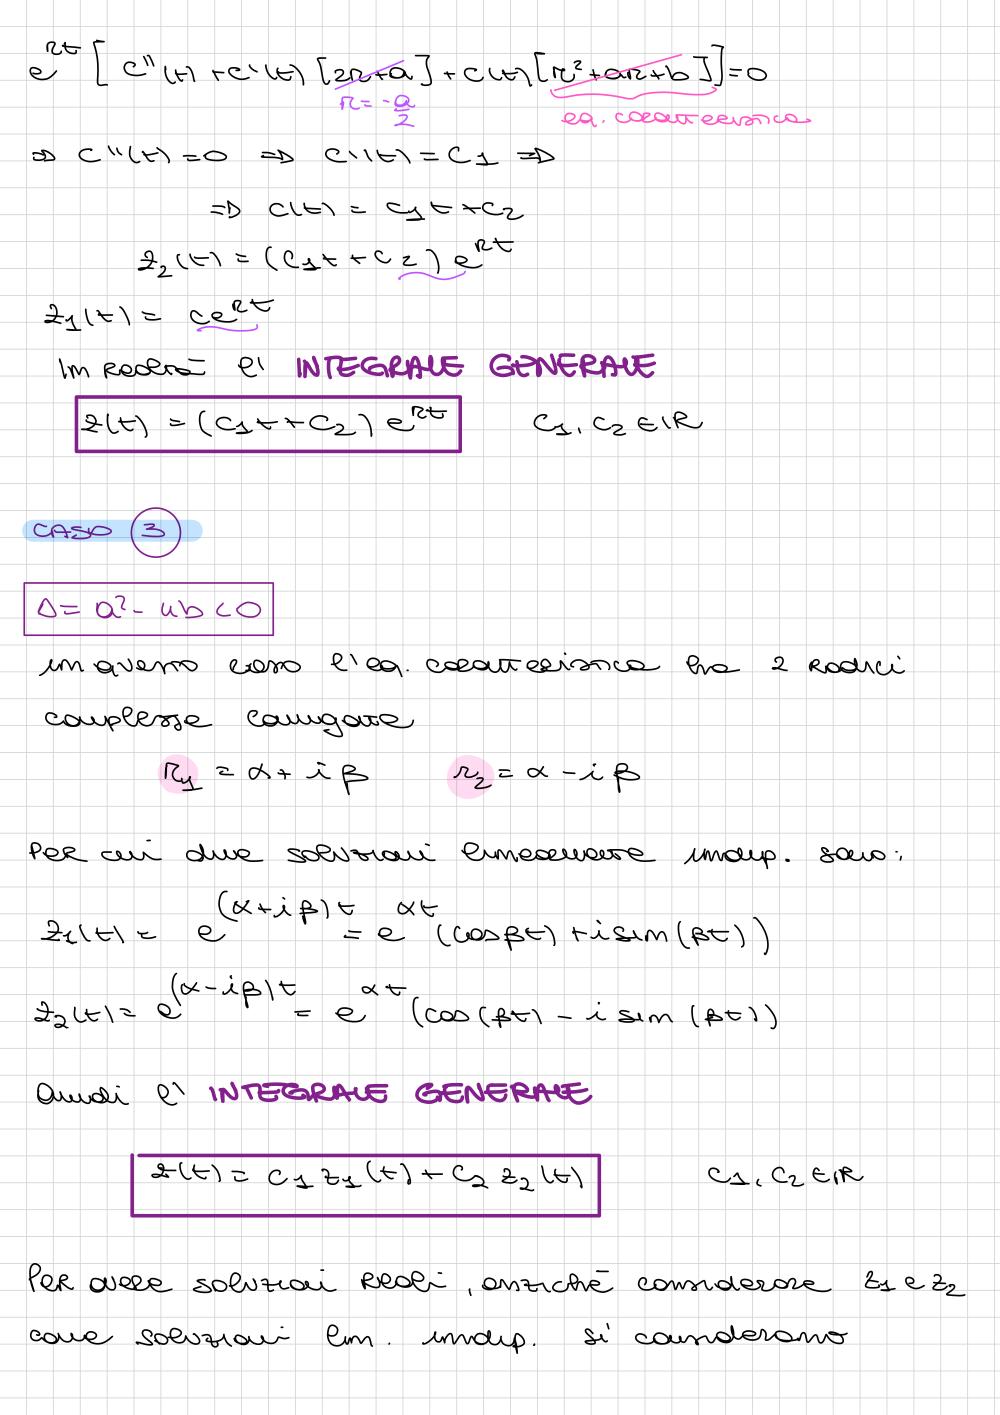 e^{rt} [ c''(t) + c'(t) [2r+a] + c(t) [r²+ar+b] ] = 0
r = -a/2
eq. caratteristica
⇒ c''(t) = 0 ⇒ c'(t) = c₁ ⇒
⇒ c(t) = c₁t + c₂
z₂(t) = (c₁t + c₂) e^{rt}
z₁(t) = ce^{rt}
In realtà l' INTEGRALE GENERALE
z(t) = (c₁t + c₂) e^{rt} c₁, c₂ ∈ ℝ
CASO 3
Δ = a² - 4b < 0
in questo caso l'eq. caratteristica ha 2 radici
complesse coniugate
r₁ = α + iβ r₂ = α - iβ
Per cui due soluzioni linearmente indip. sono:
z₁(t) = e^{(α+iβ)t} = e^{αt} (cosβt) + i sin(βt))
z₂(t) = e^{(α-iβ)t} = e^{αt} (cos(βt) - i sin(βt))
Quindi l' INTEGRALE GENERALE
z(t) = c₁ z₁(t) + c₂ z₂(t) c₁, c₂ ∈ ℝ
Per avere soluzioni reali, anziché considerare z₁ e z₂
come soluzioni lin. indip. si considerano